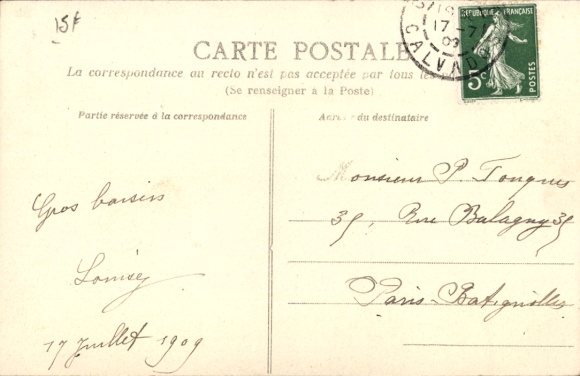 15F
CARTE POSTALE
La correspondance au recto n'est pas acceptée par tous les
(Se renseigner à la Poste)
Partie réservée à la correspondance
du destinataire
RÉPUBLIQUE FRANÇAISE
POSTES
5c
17 - 7
09
CALVADOS
Monsieur P. Tougues
35, Rue Balagny 35
Paris-Batignolles
Gros baisers
Louisey
17 Juillet 1909